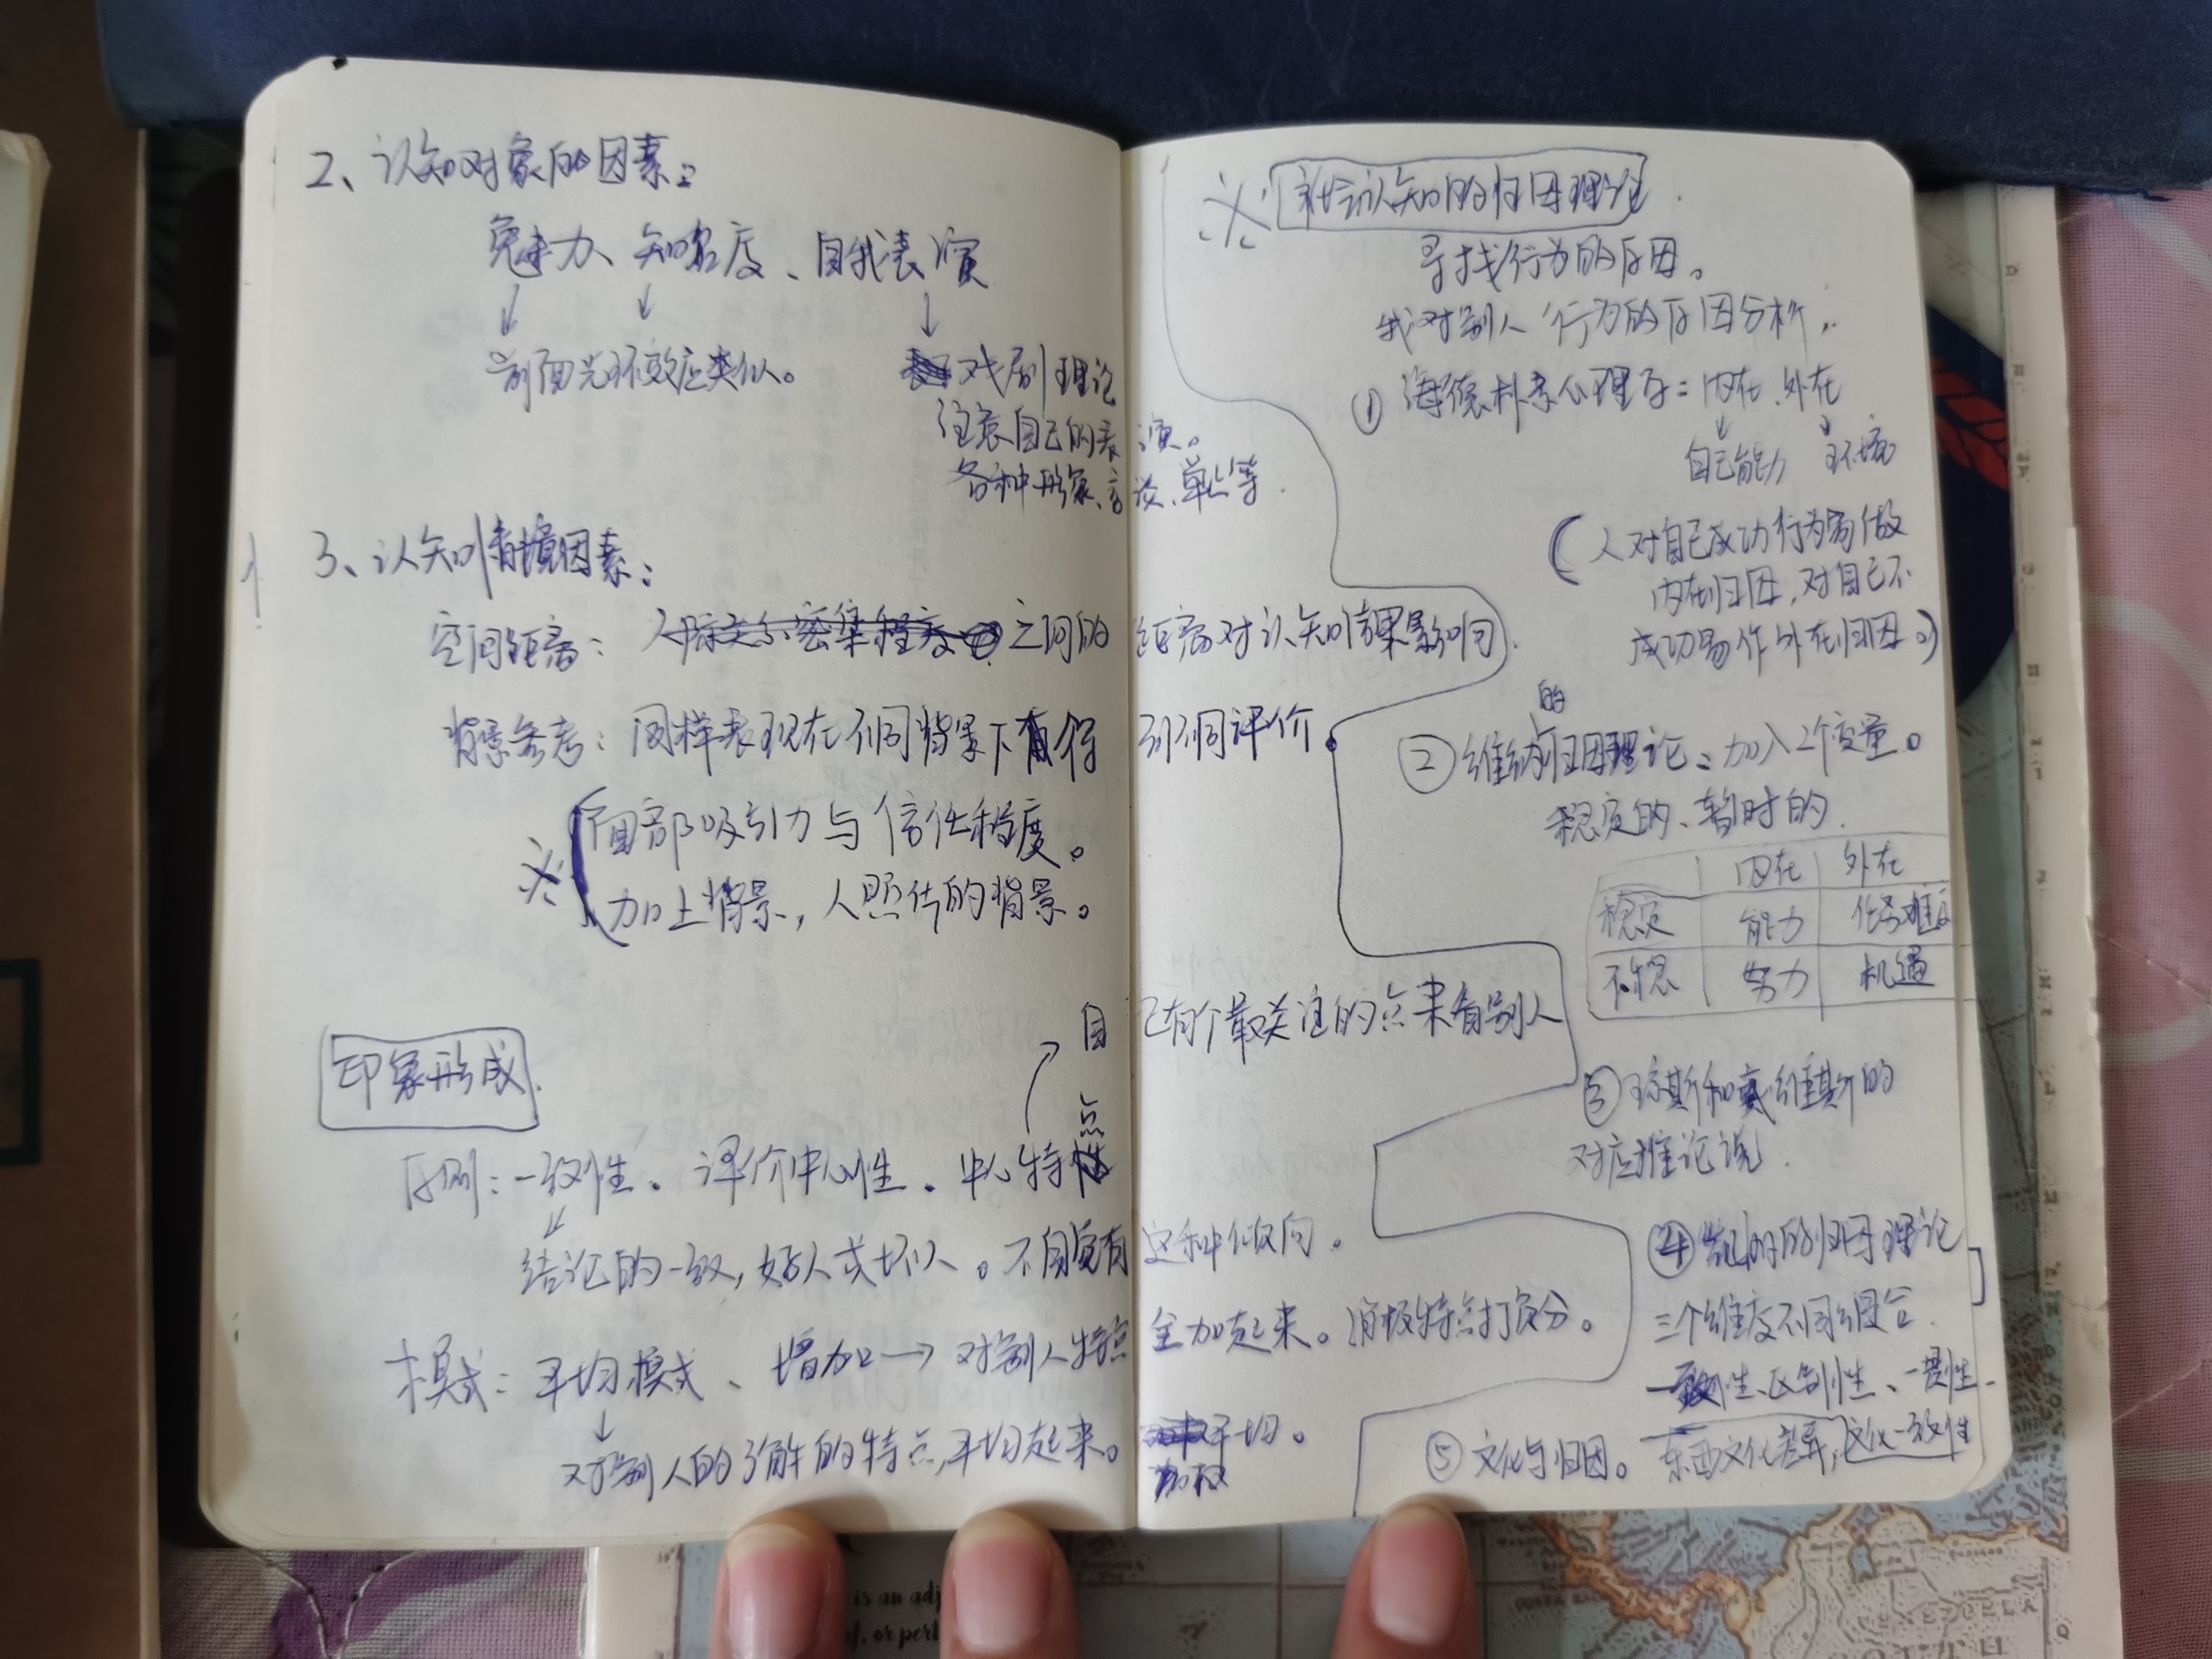 2、认知对象的因素：
魅力、知名度、自我表演
↓ ↓ ↓
前面光环效应类似。 戏剧理论
注意自己的表演。
各种形象、言谈、举止等.
3、认知情境因素：
空间距离： 之间的距离对认知结果影响.
背景参考：同样表现在不同背景下有得到不同评价
※ 面部吸引力与信任程度。
加上背景，人照片的背景。
自己有个最关注的点来看别人
印象形成.
原则：一致性. 评价中心性. 中心特点
结论的一致，好人或坏人。不自觉有这种倾向.
模式：平均模式、增加→对别人特点全加起来。消极特点打负分。
↓
对别人的了解的特点，平均起来。 平均。
加权
※ 社会认知的归因理论.
寻找行为的原因。
我对别人行为的原因分析.
① 海德朴素心理学：内在、外在
↓ ↓
自己能力 环境
(人对自己成功行为易做
内在归因，对自己不
成功易作外在归因。)
② 维纳的归因理论：加入2个变量。
稳定的、暂时的.
内在 外在
稳定 能力 任务难度
不稳 努力 机遇
③ 琼斯和戴维斯的
对应推论说.
④ 凯利的归因理论
三个维度不同组合.
一致性、区别性、一贯性.
⑤ 文化与归因。 东西文化差异，文化一致性
is an adj
of, or pert
VENEZUELA